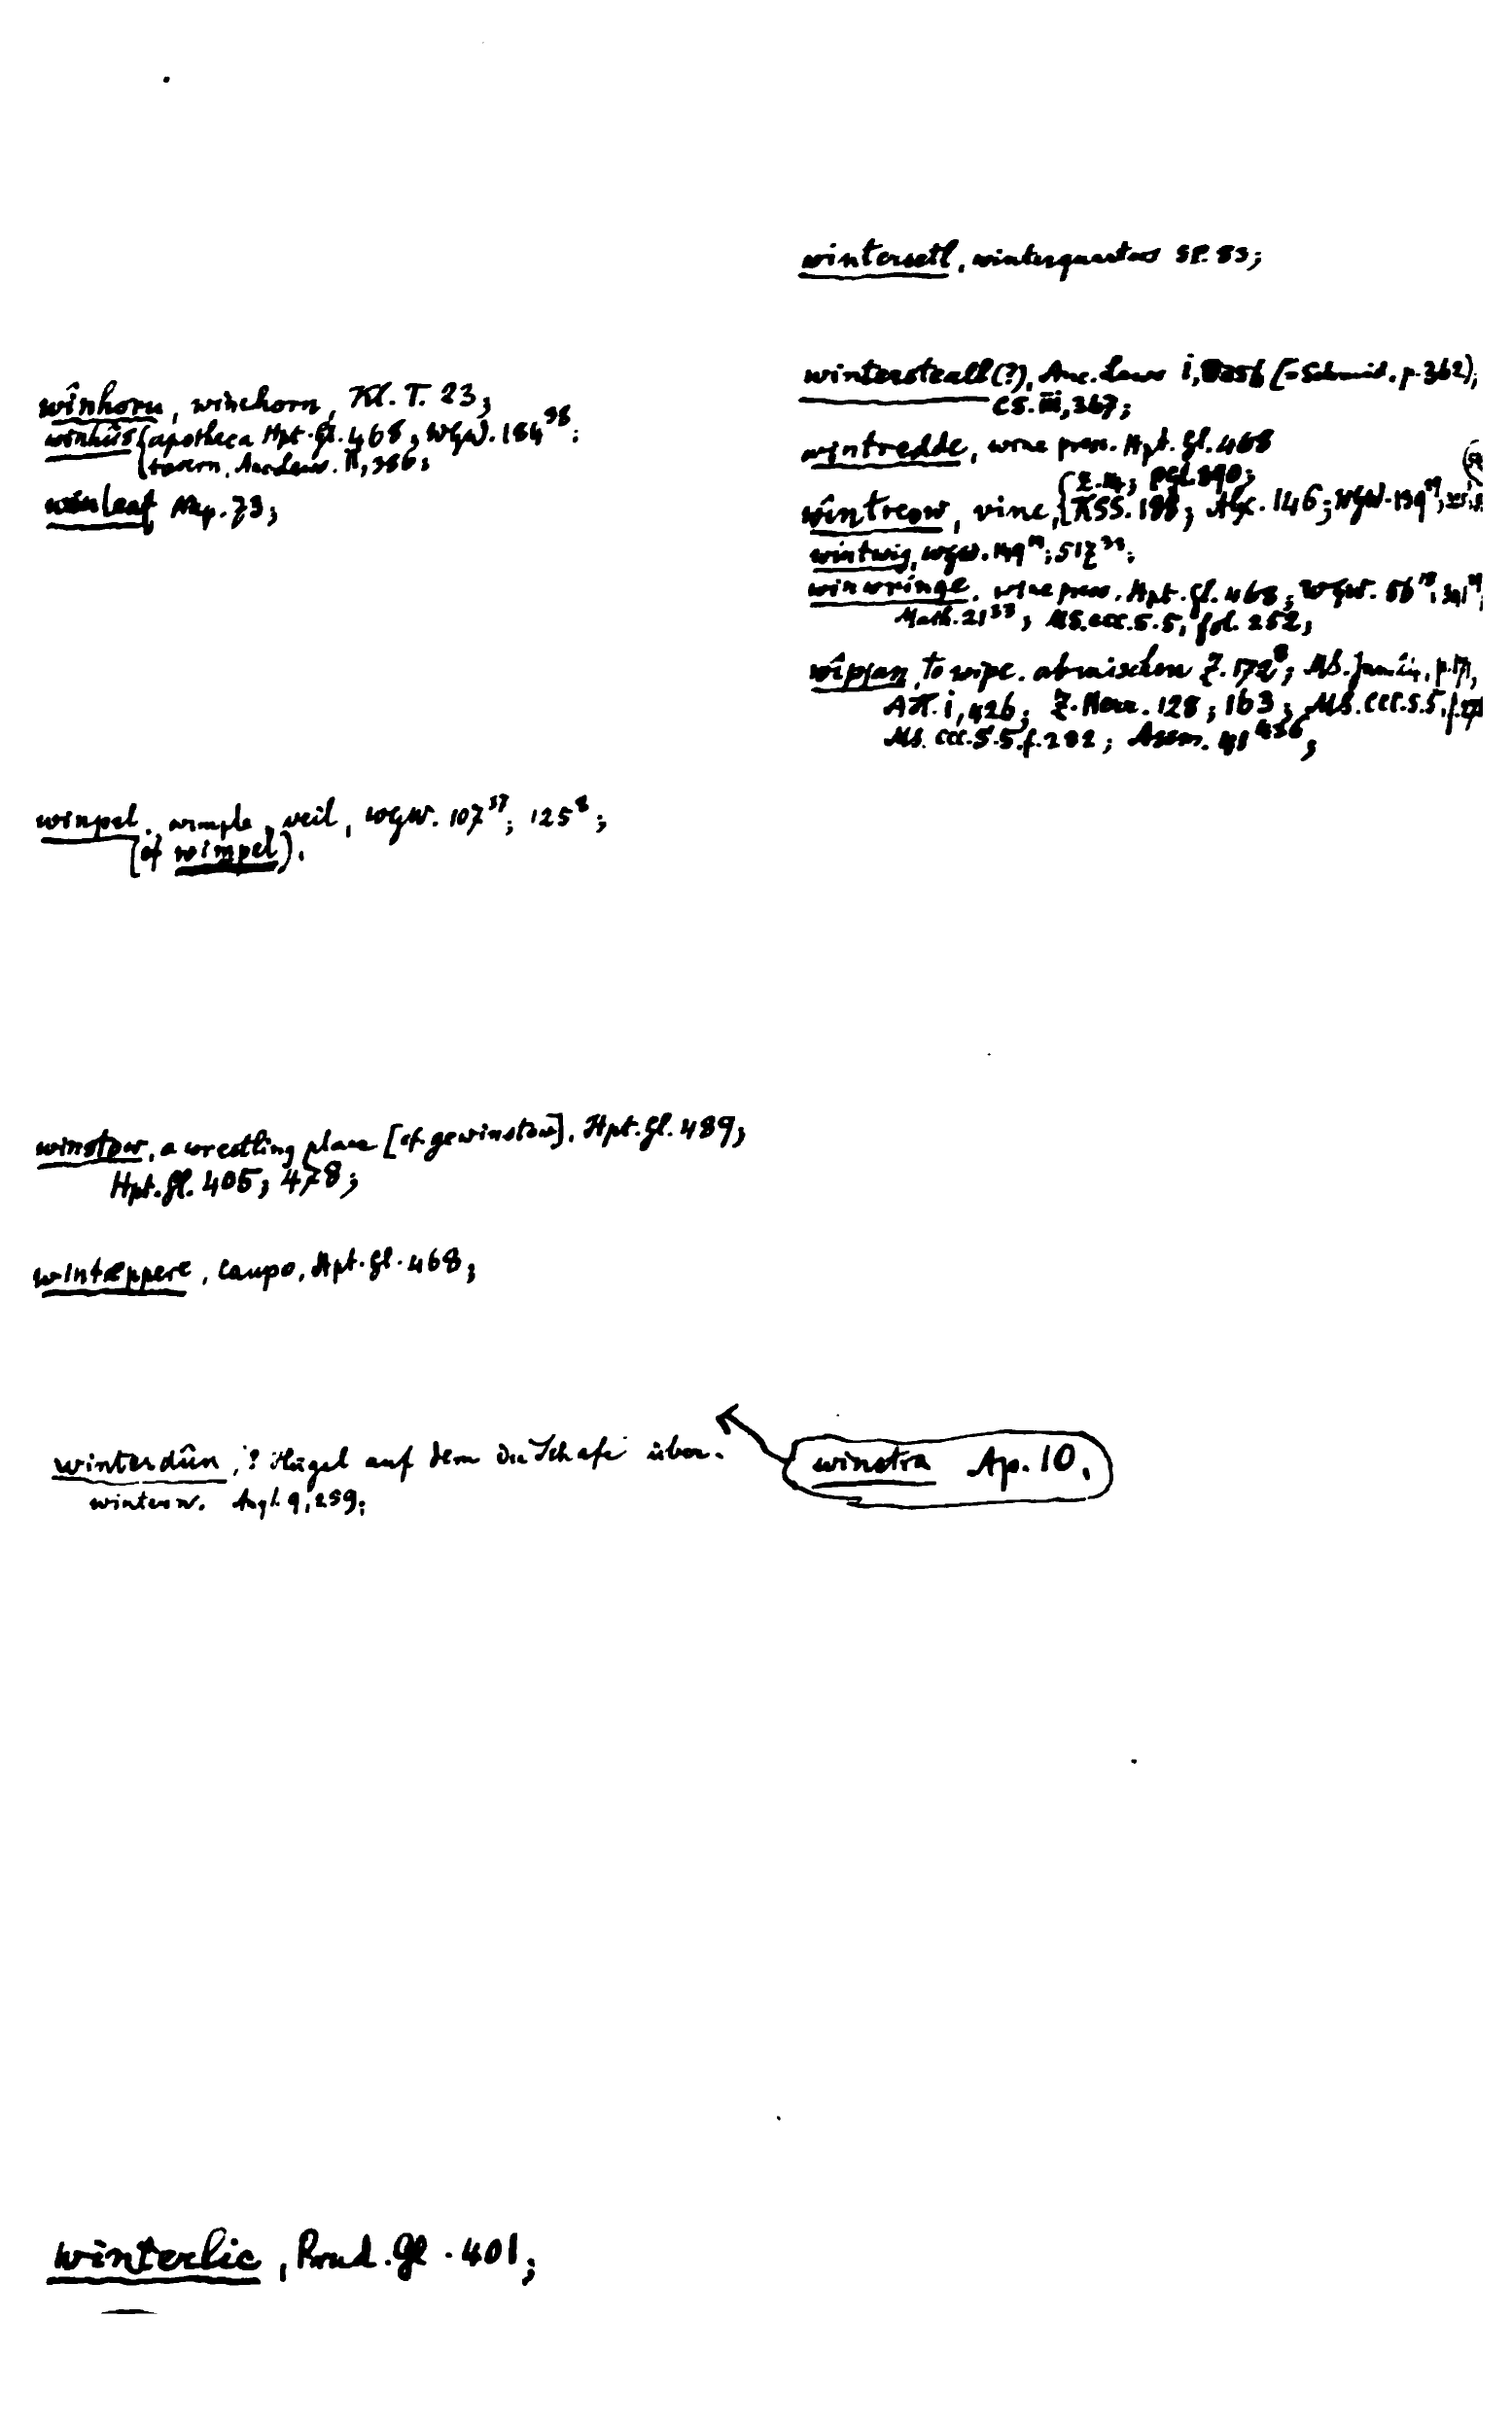 wînhorn, winehorn, Kl. T. 23;
winhûs {apotheca Hpt. Gl. 468; WGW. 184
{tavern,
winleaf Nep. 73;
winpel. wimple, veil, WGW. 107³⁷; 125⁸;
(cf wimpel).
winstow, a wrestling place [cf. gewinstow], Hpt. Gl. 489;
Hpt. Gl. 405; 478;
wintæppere, caupo, Hpt. Gl. 468;
winterdûn, ? Hügel auf dem die Schafe über-
wintern. Angl. 9, 259;
winterlic, Prud. Gl. 401;
wintersetl, winterquarters SP. 83;
wintersteall (?), Anc. Laws i, (= Schmid. p. 362),
CS. iii, 367;
wintredde, wine press. Hpt. Gl. 468
wîntreow, vine, {KSS. Alx. 146; WGW. 139
wintwig, WGW. 149
winwringe, wine press. Hpt. Gl. 468; WGW.
Math. 21³³; MS. ccc. S. 5, fol. 252;
wîpian, to wipe. abwischen Z. 172⁸; MS.
AH. i, 426; 128; 163; MS. CCC. S. 5.
MS. CCC. S. 5. f. 282; Assm.
winstra Ap. 10,